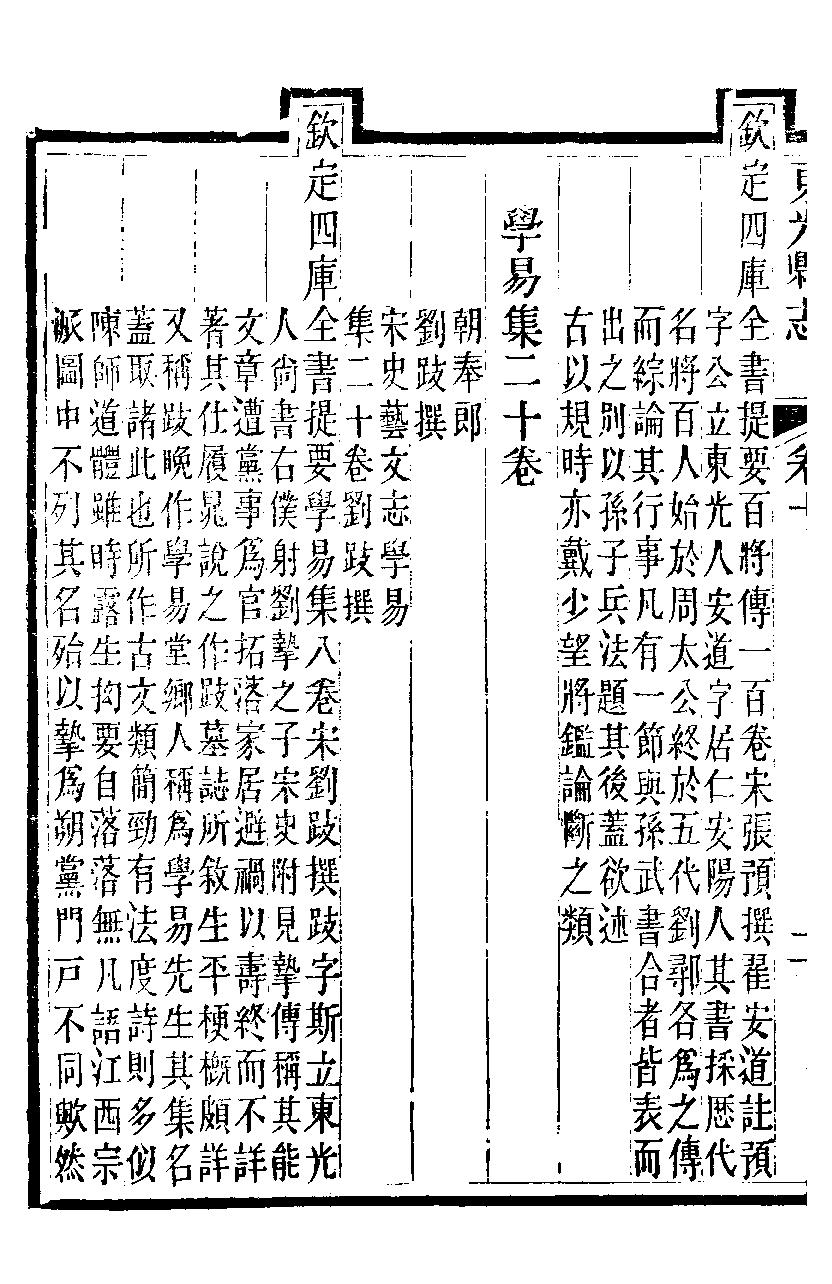 東光縣志 卷十
欽定四庫全書提要百將傳一百卷宋張預撰翟安道註預
字公立東光人安道字居仁安陽人其書採歷代
名將百人始於周太公終於五代劉鄩各爲之傳
而綜論其行事凡有一節與孫武書合者皆表而
出之別以孫子兵法題其後蓋欲述
古以規時亦戴少望將鑑論斷之類
學易集二十卷
朝奉郎
劉跂撰
宋史藝文志學易
集二十卷劉跂撰
欽定四庫全書提要學易集八卷宋劉跂撰跂字斯立東光
人尙書右僕射劉摯之子宋史附見摯傳稱其能
文章遭黨事爲官拓落家居避禍以壽終而不詳
著其仕履晁說之作跂墓誌所敘生平梗概頗詳
又稱跂晚作學易堂鄉人稱爲學易先生其集名
蓋取諸此也所作古文類簡勁有法度詩則多似
陳師道體雖時露生拗要自落落無凡語江西宗
派圖中不列其名殆以摯爲朔黨門戸不同歟然